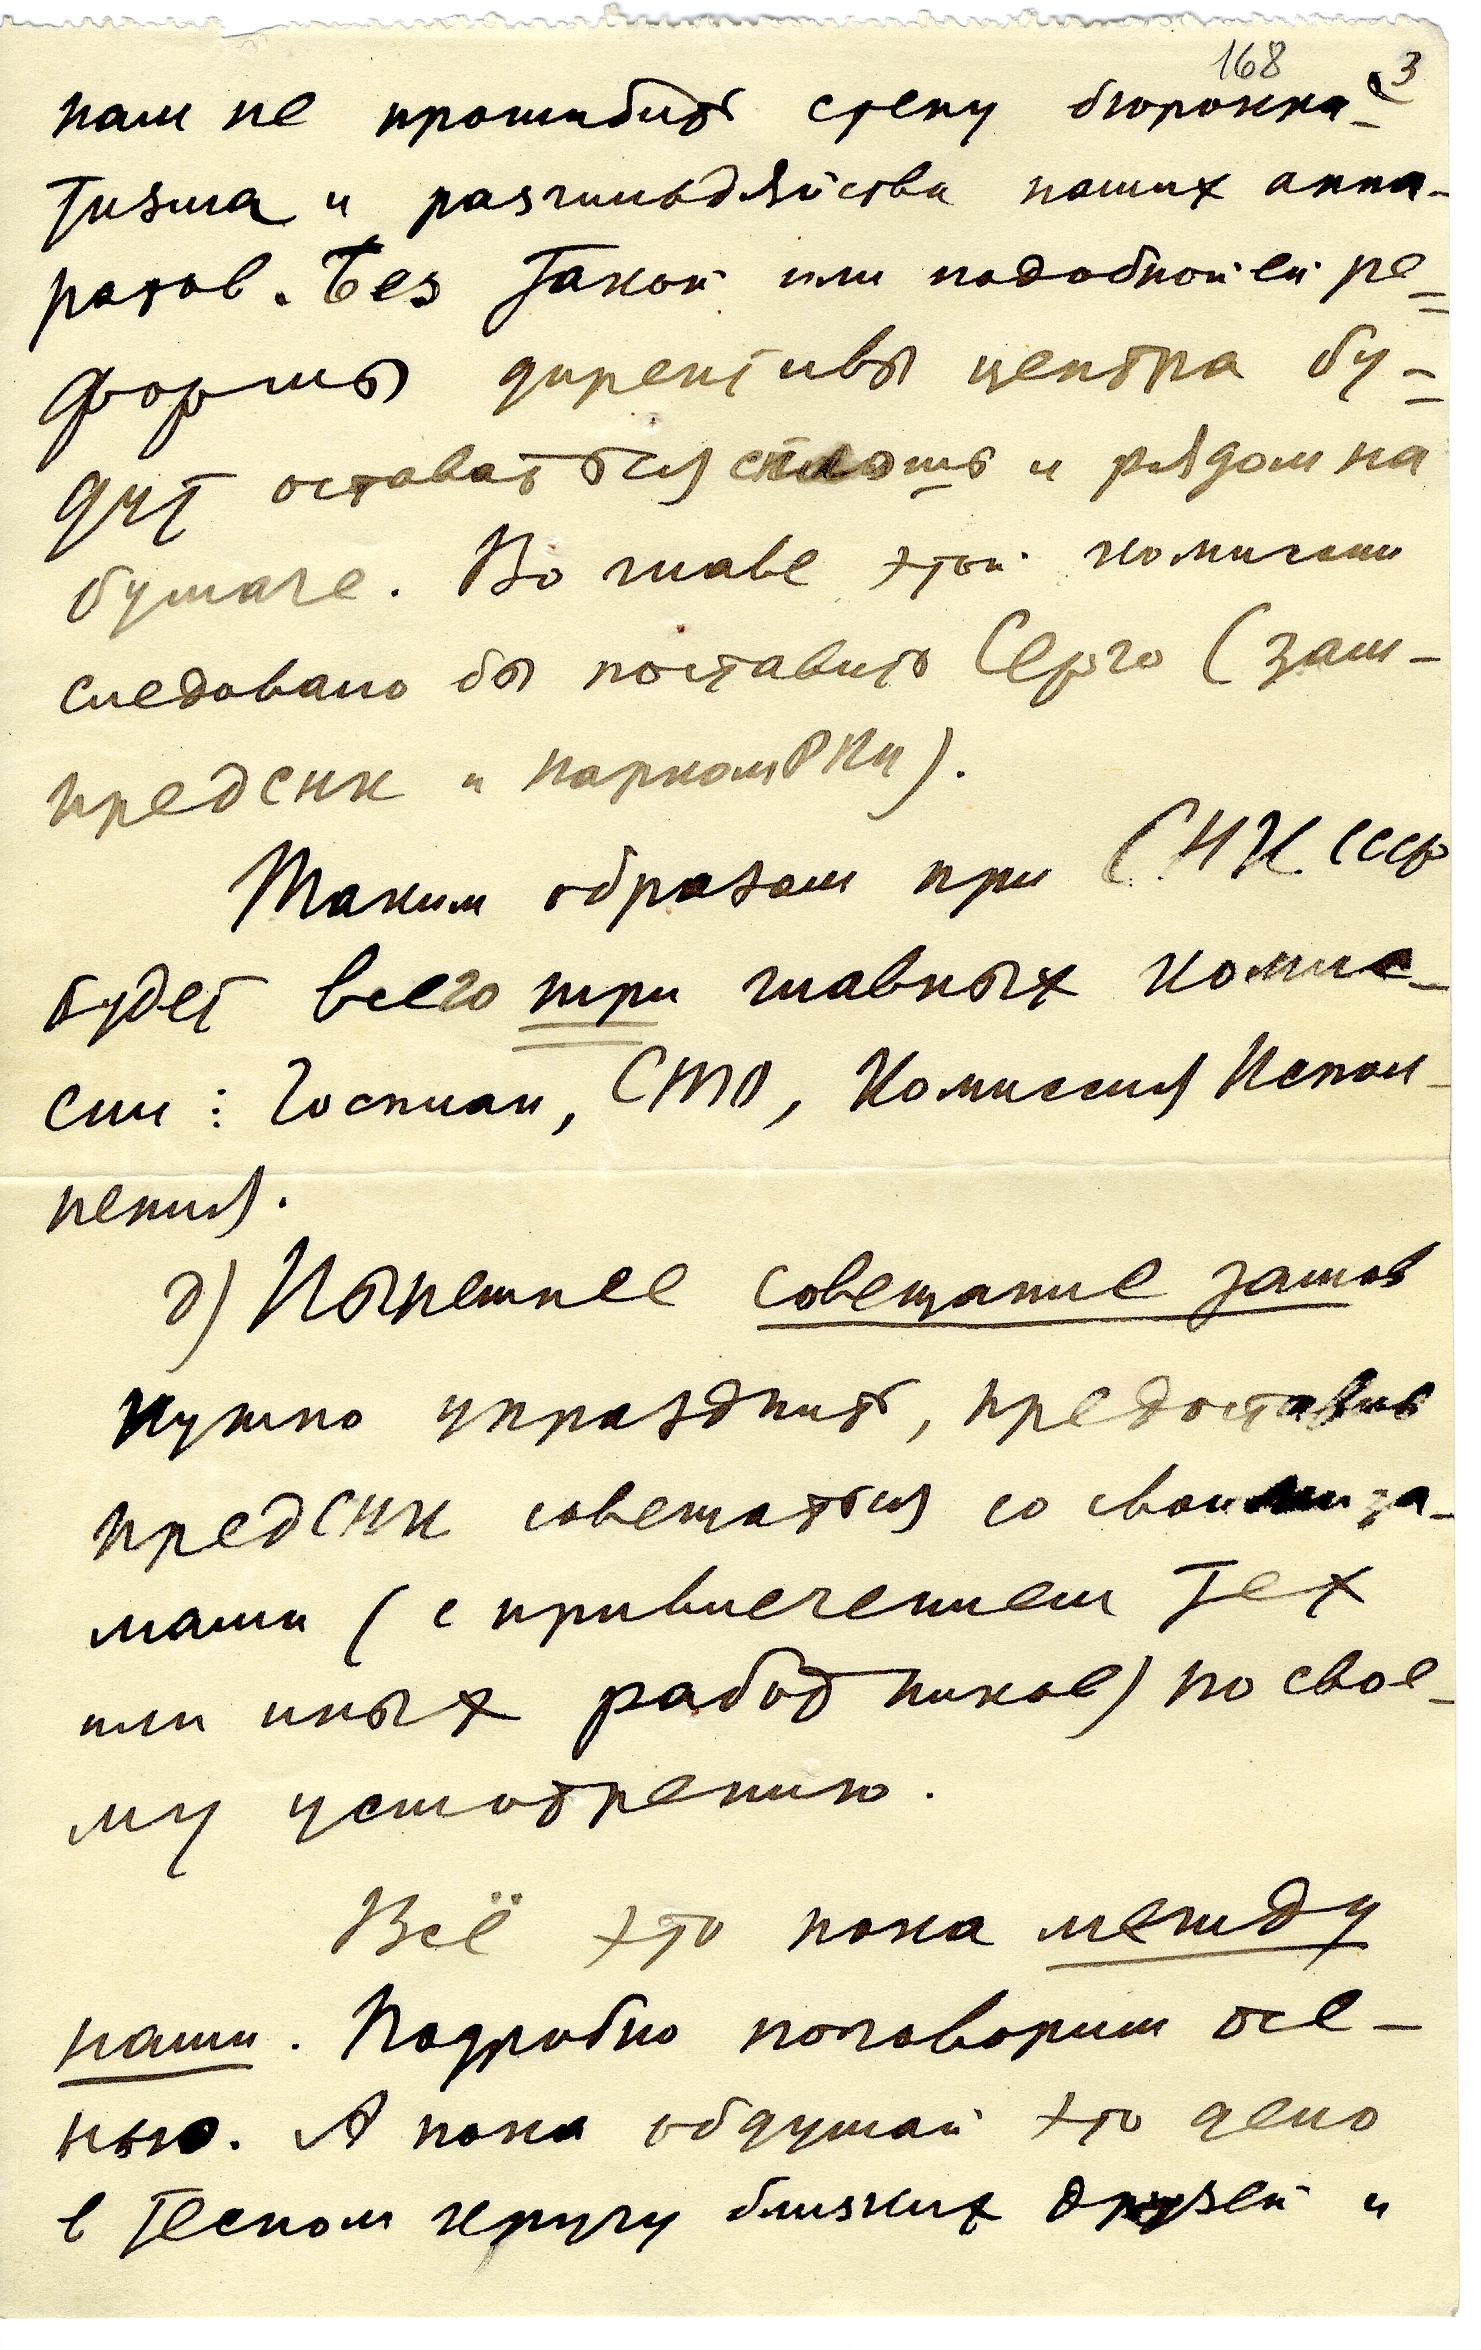 168 3
нам не прошибить стену бюрокра-
тизма и разгильдяйства наших аппа-
ратов. Без такой или подобной ей ре-
формы директивы центра бу-
дут оставаться сплошь и рядом на
бумаге. Во главе этой комиссии
следовало бы поставить Серго (зам-
предСНК и наркомРКИ).
Таким образом при СНК СССР
будет всего три главных комис-
сии: Госплан, СТО, Комиссия Испол-
нения.
д) Нынешнее совещание замов
нужно упразднить, предоставив
предСНК совещаться со своими за-
мами (с привлечением тех
или иных работников) по свое-
му усмотрению.
Всё это пока между
нами. Подробно поговорим осе-
нью. А пока обдумай это дело
в тесном кругу близких друзей и